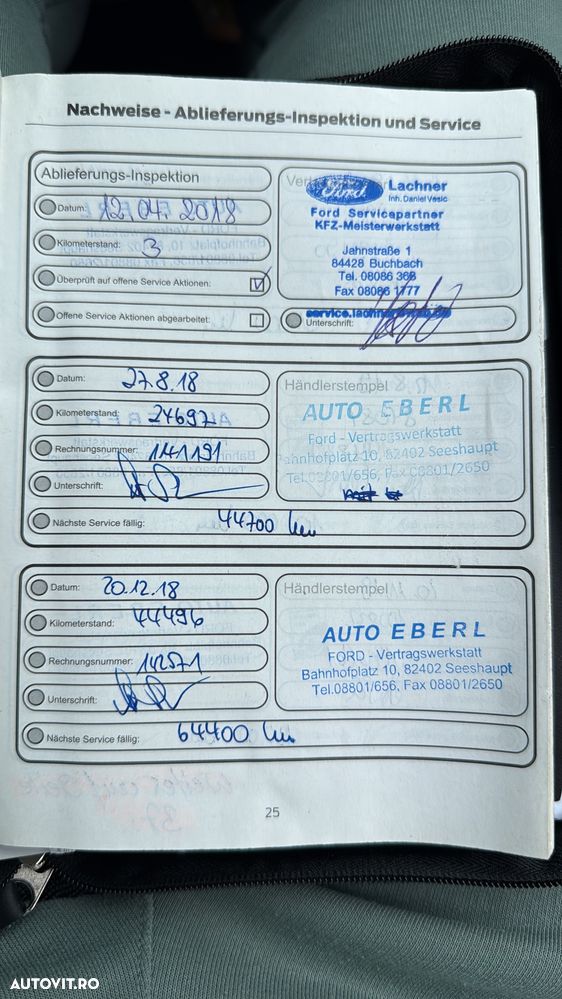 Nachweise - Ablieferungs-Inspektion und Service
Ablieferungs-Inspektion
Datum: 12.04.2018
Kilometerstand: 3
Überprüft auf offene Service Aktionen:
Offene Service Aktionen abgearbeitet:
Ford Lachner
Inh. Daniel Vasic
Ford Servicepartner
KFZ-Meisterwerkstatt
Jahnstraße 1
84428 Buchbach
Tel. 08086 368
Fax 08086 1777
Unterschrift:
Datum: 27.8.18
Kilometerstand: 24697
Rechnungsnummer: 141191
Unterschrift:
Nächste Service fällig: 44700 km
Händlerstempel
AUTO EBERL
Ford - Vertragswerkstatt
Bahnhofplatz 10, 82402 Seeshaupt
Tel.08801/656, Fax 08801/2650
Datum: 20.12.18
Kilometerstand: 44496
Rechnungsnummer: 142571
Unterschrift:
Nächste Service fällig: 64400 km
Händlerstempel
AUTO EBERL
FORD - Vertragswerkstatt
Bahnhofplatz 10, 82402 Seeshaupt
Tel.08801/656, Fax 08801/2650
25
AUTOVIT.RO